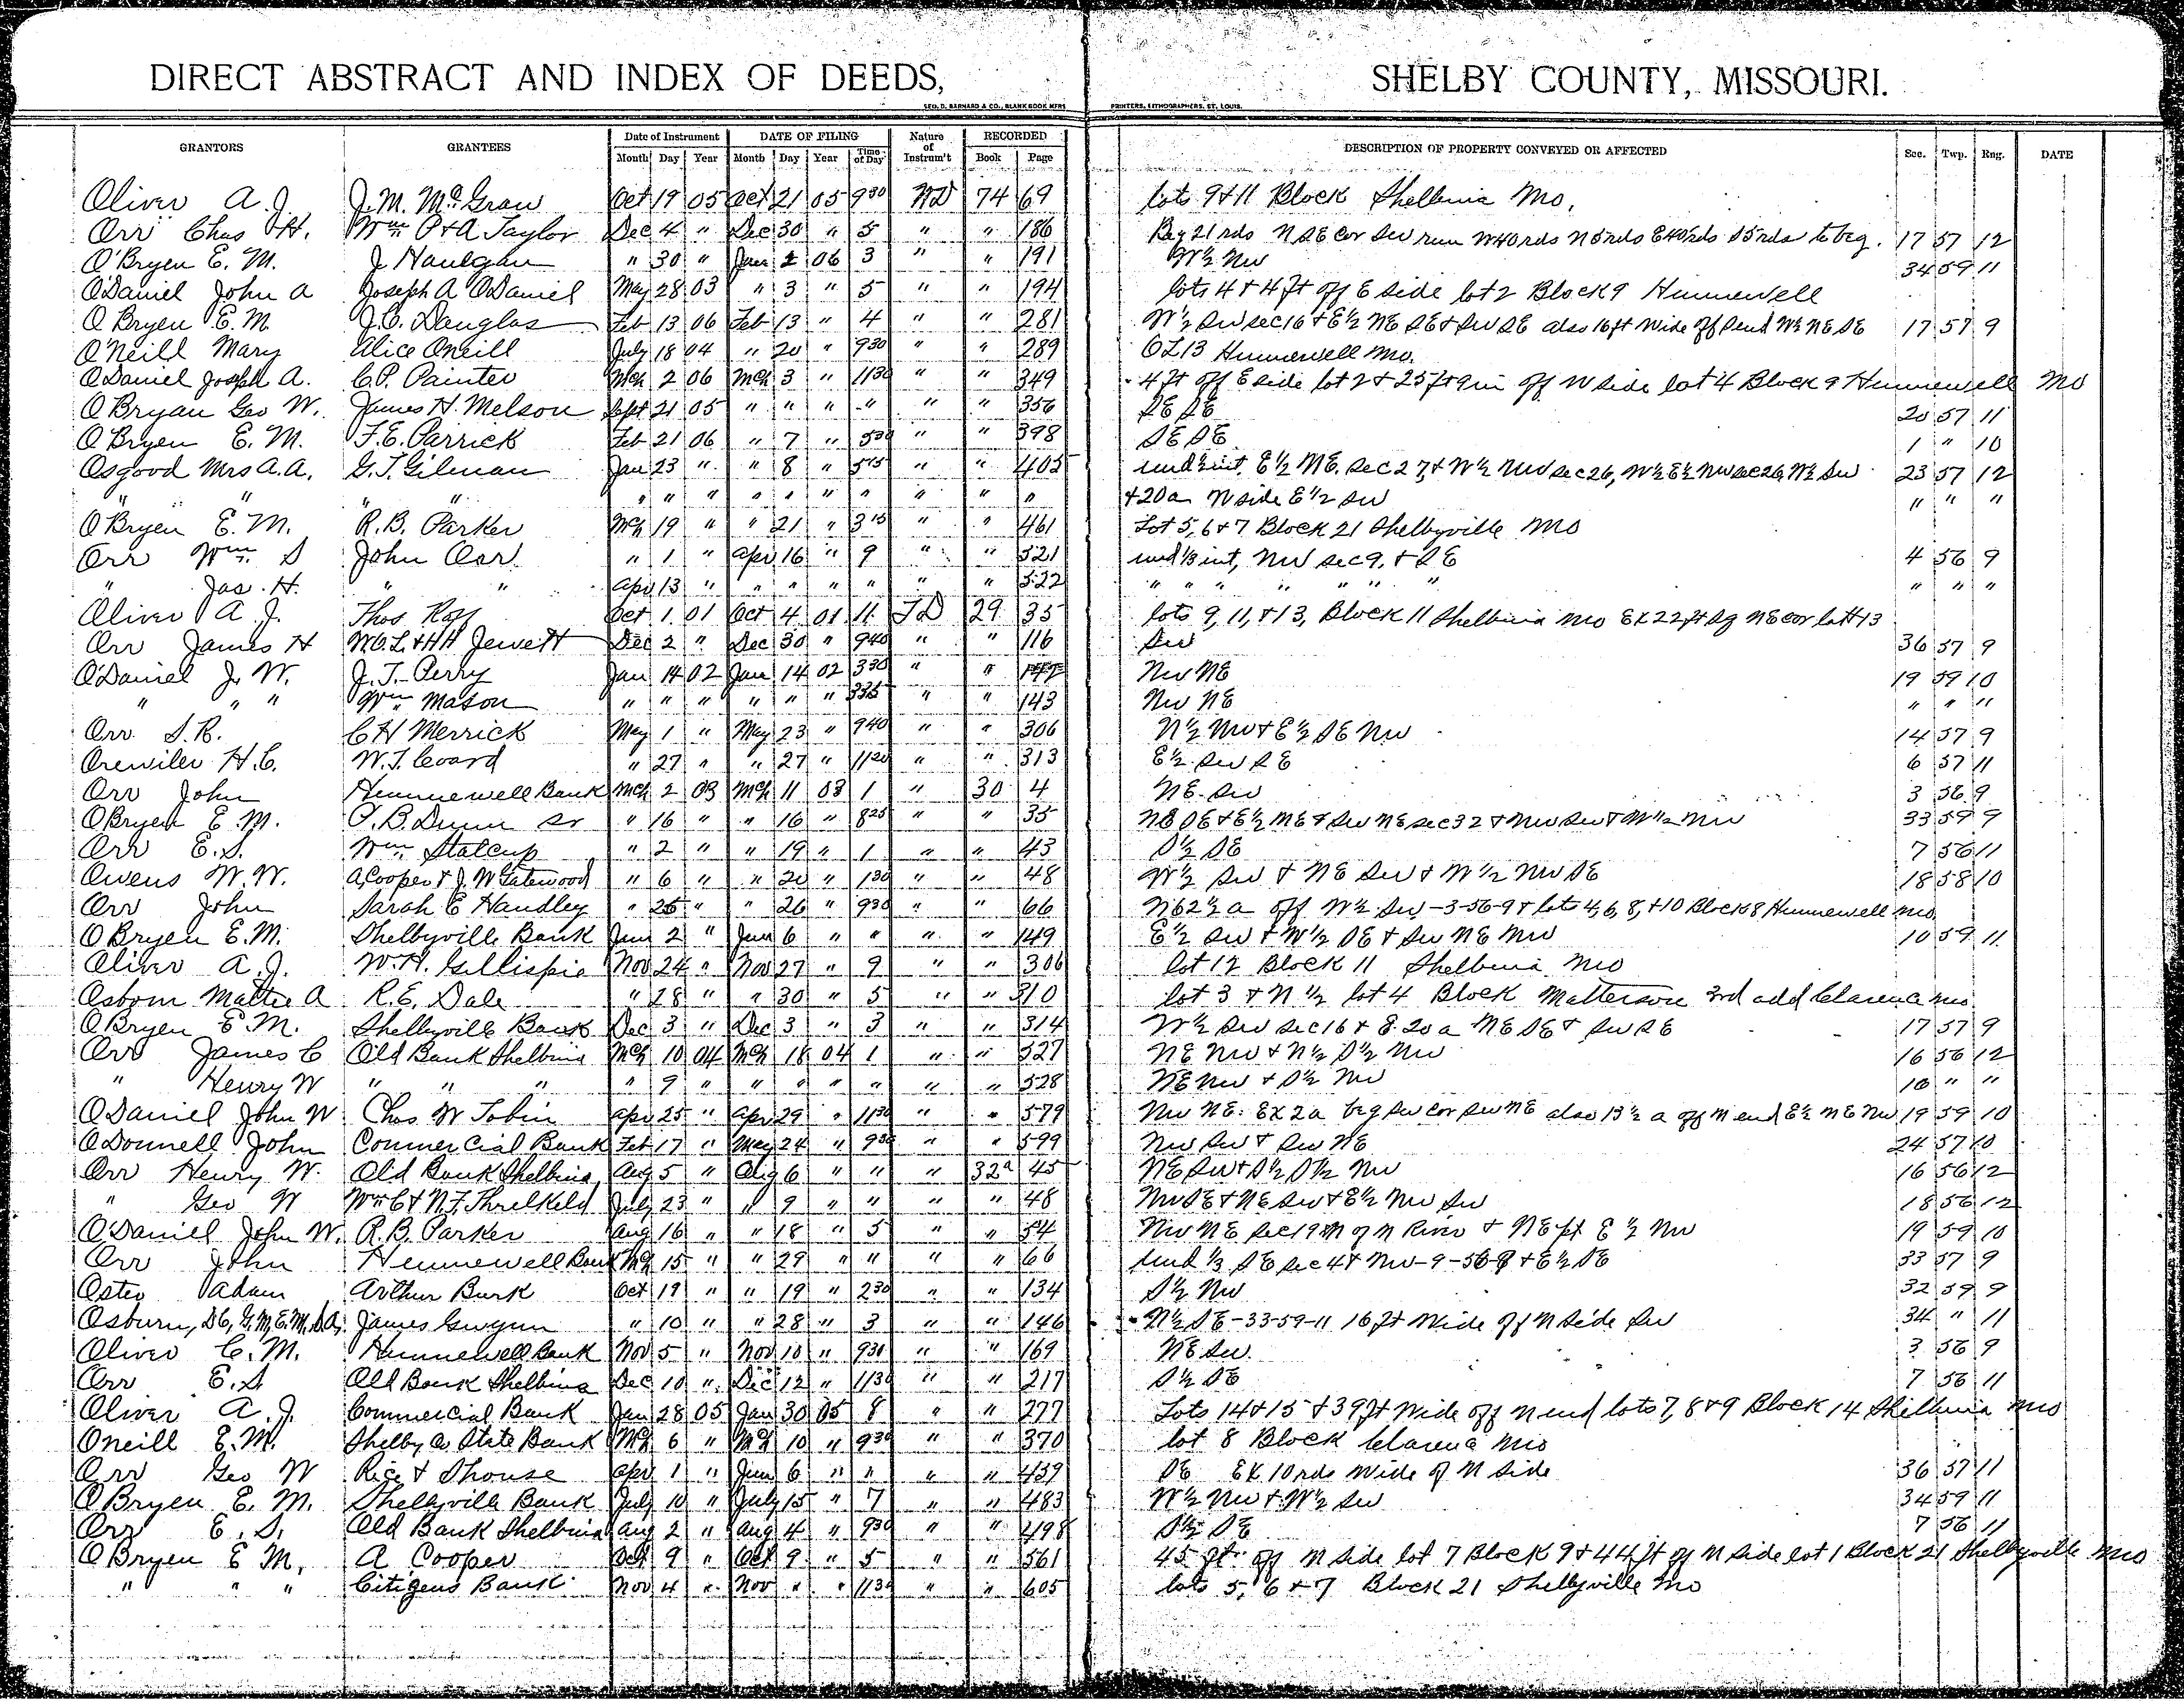 DIRECT ABSTRACT AND INDEX OF DEEDS, SHELBY COUNTY, MISSOURI.
GEO. D. BARNARD & CO., BLANK BOOK MFRS PRINTERS, LITHOGRAPHERS, ST. LOUIS.
GRANTORS GRANTEES Date of Instrument DATE OF FILING Nature of Instrum't RECORDED DESCRIPTION OF PROPERTY CONVEYED OR AFFECTED Sec. Twp. Rng. DATE
Month Day Year Month Day Year Time of Day Book Page
Oliver A. J. J. M. McGraw Oct 19 05 Oct 21 05 9 30 WD 74 69 lots 9 & 11 Block Shelbina Mo.
Orr Chas H. Wm P & A Taylor Dec 4 " Dec 30 " 5 " " 186 Beg 21 rds N SE cor SW run W 40 rds N 5 rds E 40 rds S 5 rds to beg. 17 57 12
O'Bryen E. M. J " 30 " Jan 2 06 3 " " 191 W½ NW 34 59 11
O'Daniel John A Joseph A O'Daniel May 28 03 " 3 " 5 " " 194 lots 4 & 4 ft off E side lot 2 Block 9 Hunnewell
O Bryen E. M. J. C. Douglas Feb 13 06 Feb 13 " 4 " " 281 W½ SW sec 16 & E½ NE SE & SW SE also 16 ft wide off S end W½ NE SE 17 57 9
O'Neill Mary Alice Oneill July 18 04 " 20 " 9 30 " " 289 OL 13 Hunnewell Mo.
O'Daniel Joseph A. C. P. Painter Mch 2 06 Mch 3 " 11 30 " " 349 4 ft off E side lot 2 & 25 ft 9 in off W side lot 4 Block 9 Hunnewell Mo
O Bryan Geo W. James H. Melson Sept 21 05 " " " " " " 356 SE SE 20 57 11
O'Bryen E. M. F. E. Parrick Feb 21 06 " 7 " 5 30 " " 398 SE SE 1 " 10
Osgood Mrs A. A. G. T. Gilman Jan 23 " " 8 " 5 15 " " 405 und ½ int. E½ NE. sec 27, & W½ NW sec 26, W½ E½ NW sec 26, W½ SW 23 57 12
" " " " " " " " " " " " " " & 20 a N side E½ SW " " "
O Bryen E. M. R. B. Parker Mch 19 " " 21 " 3 15 " " 461 Lot 5, 6 & 7 Block 21 Shelbyville Mo
Orr Wm. S John Orr " 1 " Apr 16 " 9 " " 521 und ⅓ int, NW sec 9, & SE 4 56 9
" Jas. H. " " Apr 13 " " " " " " " 522 " " " " " " " " "
Oliver A. J. Thos Oct 1 01 Oct 4 01 11 TD 29 35 lots 9, 11, & 13, Block 11 Shelbina Mo Ex 22 ft sq NE cor lot 13
Orr James H W. O. L. & H H Jewett Dec 2 " Dec 30 " 9 40 " " 116 SW 36 57 9
O'Daniel J. W. J. T. Perry Jan 14 02 Jan 14 02 3 30 " " 142 NW NE 19 59 10
" " " Wm Mason " " " " " " 3 35 " " 143 NW NE " " "
Orr S. R. C H Merrick May 1 " May 23 " 9 40 " " 306 N½ NW & E½ SE NW 14 57 9
Orewiler H. C. W. T. Coard " 27 " " 27 " 11 20 " " 313 E½ SW SE 6 57 11
Orr John Hunnewell Bank Mch 2 03 Mch 11 03 1 " 30 4 NE SW 3 56 9
O Bryen E. M. P. B. Dunn Sr " 16 " " 16 " 8 25 " " 35 NE SE & E½ NE & SW NE sec 32 & NW SW & W½ NW 33 59 9
Orr E. S. Wm. Stalcup " 2 " " 19 " 1 " " 43 S½ SE 7 56 11
Owens W. W. A, Cooper & J. W Gatewood " 6 " " 20 " 1 30 " " 48 W½ SW & NE SW & W½ NW SE 18 58 10
Orr John Sarah E Handley " 25 " " 26 " 9 30 " " 66 N 62½ a off W½ SW - 3-56-9 & lots 4, 6, 8, & 10 Block 8 Hunnewell Mo.
O Bryen E. M. Shelbyville Bank Jun 2 " Jun 6 " " " " 149 E½ SW & W½ SE & SW NE NW 10 59 11
Oliver A. J. W. H. Gillispie Nov 24 " Nov 27 " 9 " " 306 lot 12 Block 11 Shelbina Mo
Osborn Mattie A R. E. Dale " 28 " " 30 " 5 " " 310 lot 3 & N½ lot 4 Block Matterson 3rd add Clarence Mo.
O Bryen E. M. Shelbyville Bank Dec 3 " Dec 3 " 3 " " 314 W½ SW sec 16 & E. 20 a NE SE & SW SE 17 57 9
Orr James C Old Bank Shelbina Mch 10 04 Mch 18 04 1 " " 527 NE NW & N½ S½ NW 16 56 12
" Henry W " " " " 9 " " " " " " " 528 NE NW & S½ NW 16 " "
O Daniel John W Chas W Tobin Apr 25 " Apr 29 " 11 30 " " 579 NW NE. Ex 2 a beg SW cor SW NE also 13½ a off N end E½ NE NW 19 59 10
O Donnell John Commercial Bank Feb 17 " May 24 " 9 30 " " 599 NW SW & SW NE 24 57 10
Orr Henry W. Old Bank Shelbina Aug 5 " Aug 6 " " " 32a 45 NE SW & S½ S½ NW 16 56 12
" Geo W Wm C & N. F. Threlkeld July 23 " " 9 " " " " 48 NW SE & NE SW & E½ NW SW 18 56 12
O'Daniel John W. R. B. Parker Aug 16 " " 18 " 5 " " 54 NW NE sec 19 N of N River & NE pt E½ NW 19 59 10
Orr John Hunnewell Bank Mch 15 " " 29 " " " " 66 und ⅓ SE sec 4 & NW - 9 - 56-9 & E½ SE 33 57 9
Oster Adam Arthur Burk Oct 19 " " 19 " 2 30 " " 134 S½ NW 32 59 9
Osburn, D C, G. M, E. M, S A, James Gwynn " 10 " " 28 " 3 " " 146 N½ SE - 33-59-11 16 ft wide off N side SW 34 " 11
Oliver C. M. Hunnewell Bank Nov 5 " Nov 10 " 9 30 " " 169 NE SW. 3 56 9
Orr E. S Old Bank Shelbina Dec 10 " Dec 12 " 11 30 " " 217 S½ SE 7 56 11
Oliver A. J. Commercial Bank Jan 28 05 Jan 30 05 8 " " 277 Lots 14 & 15 & 39 ft wide off N end lots 7, 8 & 9 Block 14 Shelbina Mo
Oneill E. M. Shelby Co State Bank Mch 6 " Mch 10 " 9 30 " " 370 lot 8 Block Clarence Mo
Orr Geo W Rice & Shouse Apr 1 " Jun 6 " " " " 439 SE Ex 10 rds wide of N side 36 57 11
O Bryen E. M. Shelbyville Bank July 10 " July 15 " 7 " " 483 W½ NW & W½ SW 34 59 11
Orr E. S. Old Bank Shelbina Aug 2 " Aug 4 " 9 30 " " 498 S½ SE 7 56 11
O Bryen E M. A Cooper Oct 9 " Oct 9 " 5 " " 561 45 ft off N side lot 7 Block 9 & 44 ft off N side lot 1 Block 21 Shelbyville Mo
" " " Citizens Bank Nov 4 " Nov " " 11 30 " " 605 lots 5, 6 & 7 Block 21 Shelbyville Mo